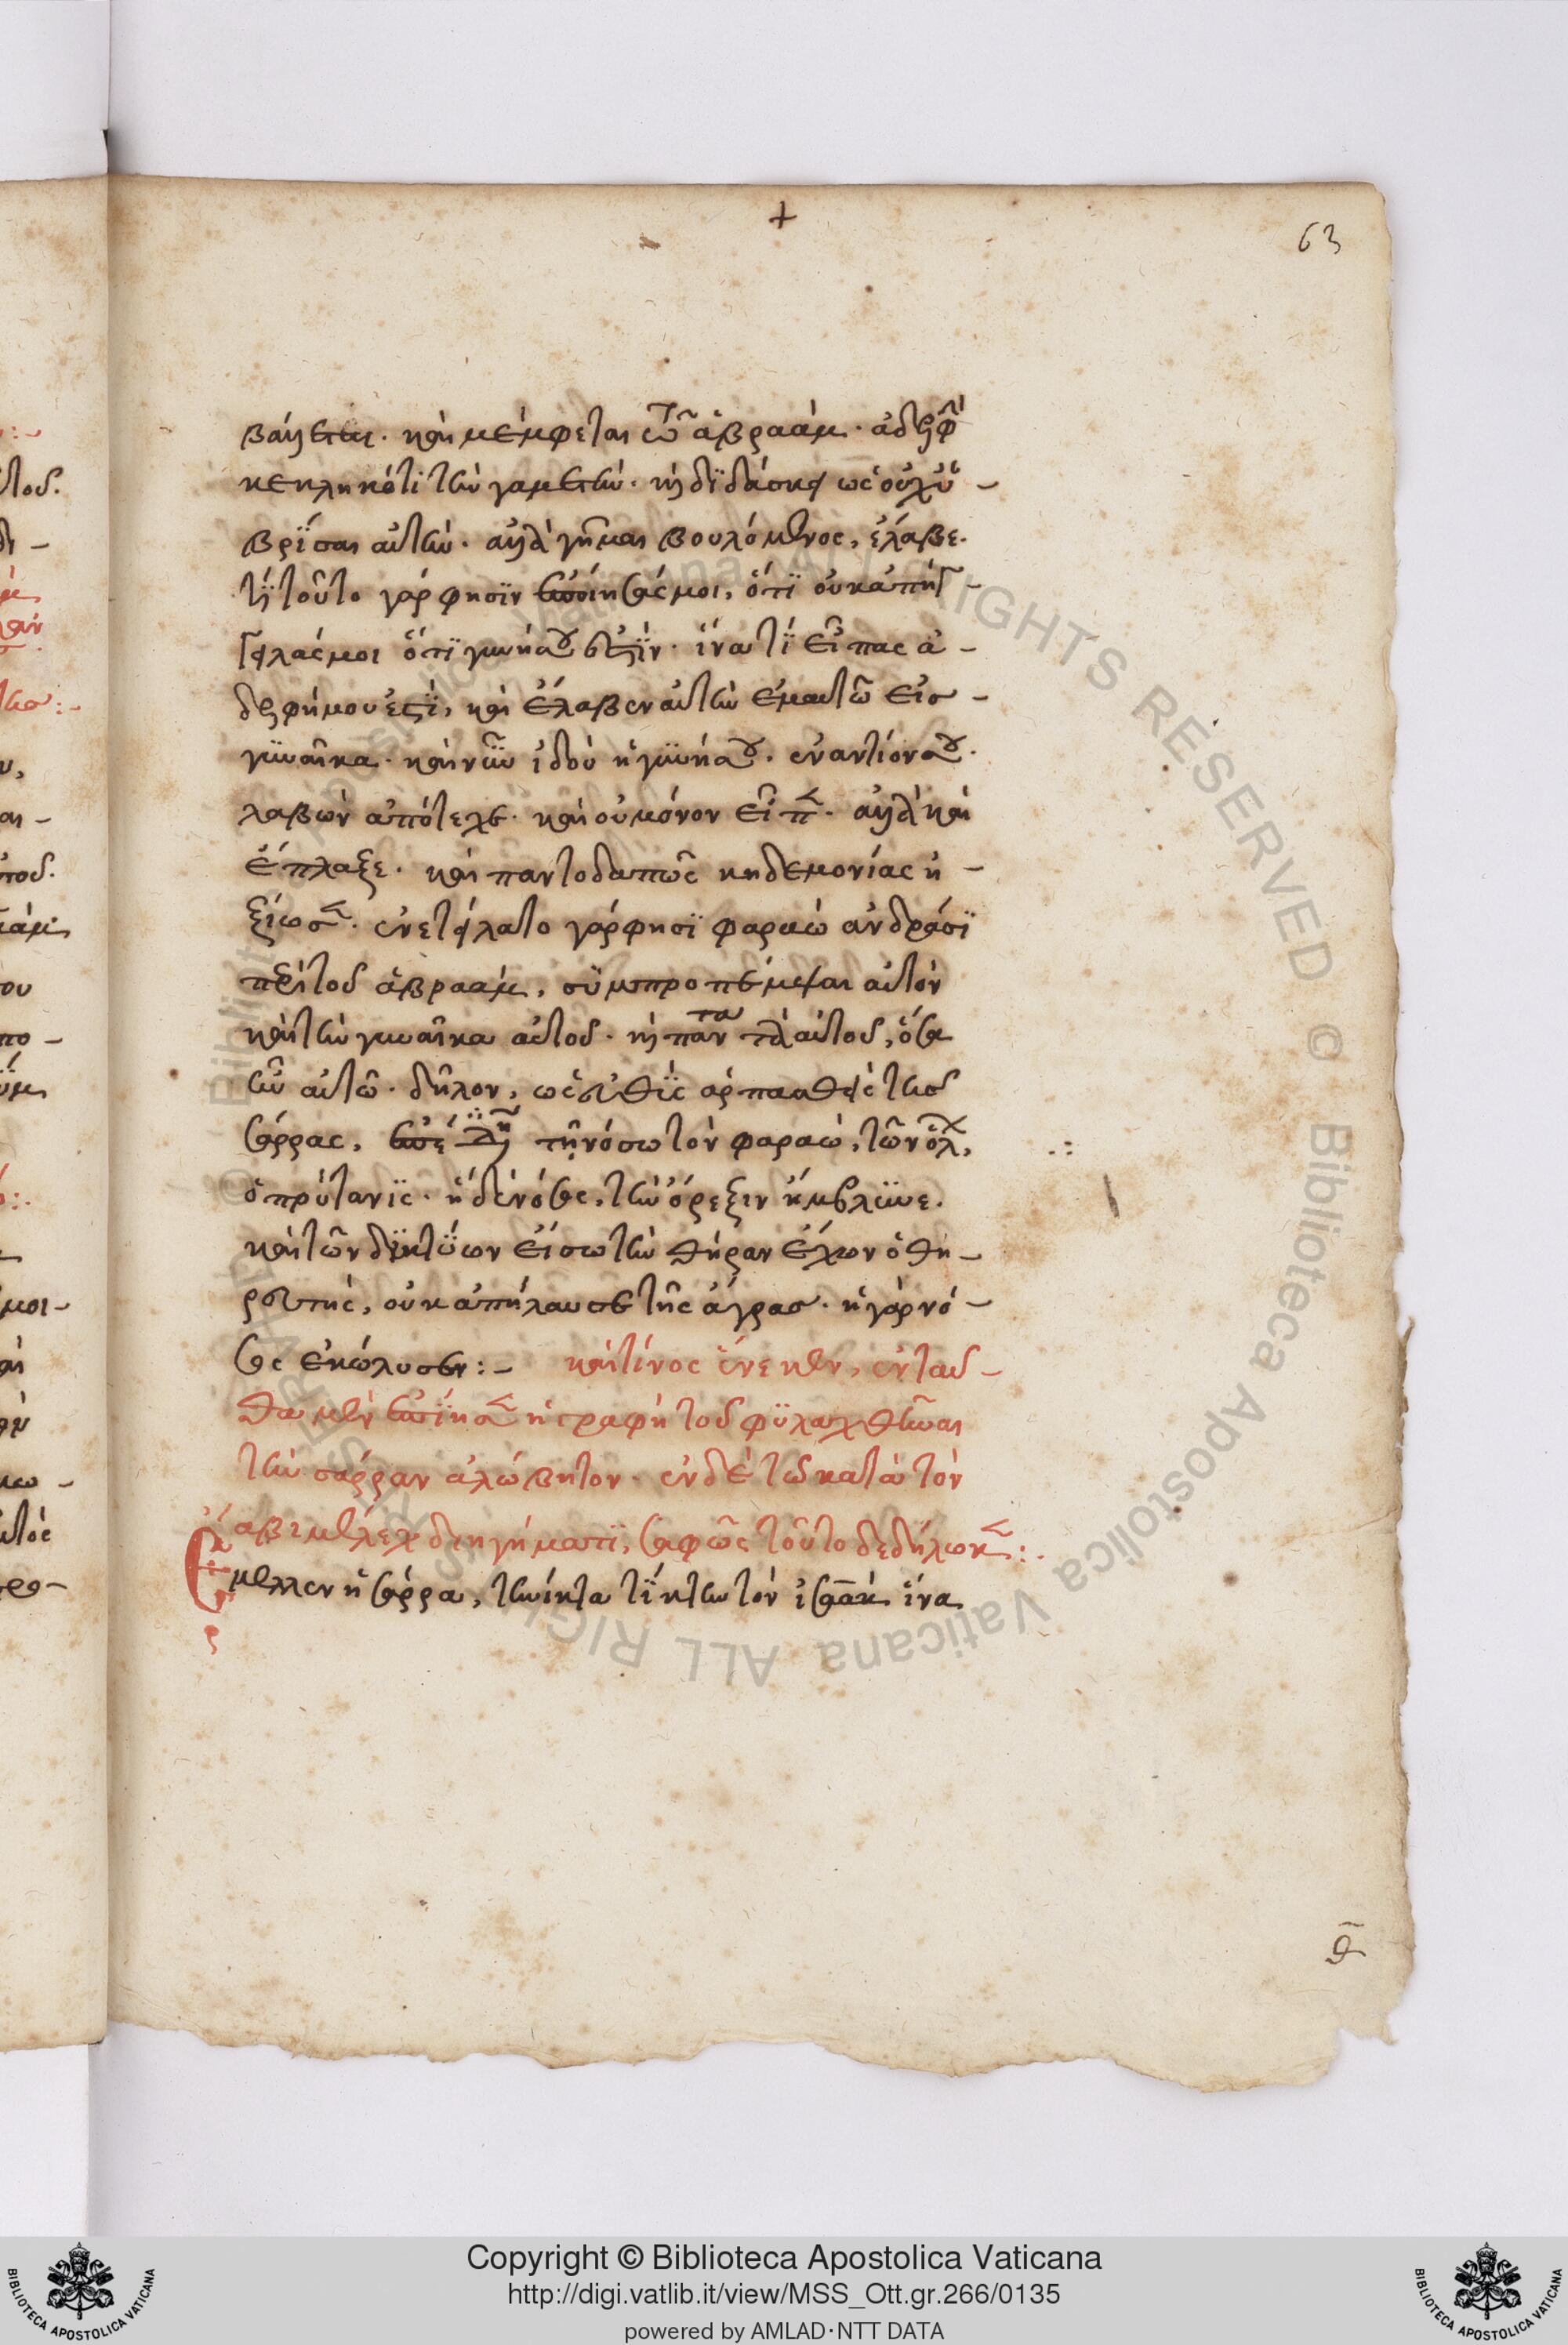 +
63
βάλλεται· καὶ μέμφεται τῶ ἀβραάμ· ἀδελφὴν
κεκληκότι τὴν γαμετήν· κὴ διδάσκει ὡς οὐχ ὑ-
βρίσαι αὐτὴν· ἀλλὰ γῆμαι βουλόμενος, ἔλαβε·
τί τοῦτο γάρ φησϊν ἐποίησάς μοι, ὅτϊ οὐκ ἀπήγ-
γειλάς μοι ὅτϊ γυνή σου ἐστϊν· ἵνα τί εἶπας ἀ-
δελφή μου ἐστϊ, καὶ ἔλαβον αὐτὴν ἐμαυτῶ εἰσ-
γυναῖκα· καὶ νῦν ἰδοὺ ἡ γυνή σου· ἐναντίον σου·
λαβὼν ἀπότρεχε· καὶ οὐ μόνον εἶπεν· ἀλλὰ καὶ
ἔπλαξε· καὶ παντοδαπῶς κηδεμονίας ἠ-
ξίωσεν· ἐνετείλατο γάρ φησϊ φαραὼ ἀνδράσϊ
περὶ τοῦ ἀβραάμ, συμπροπέμψαι αὐτὸν
καὶ τὴν γυναῖκα αὐτοῦ· κὴ πάντα τὰ αὐτοῦ, ὅσα
ἦν αὐτῶ· δῆλον, ὡς εὐθὺς ἁρπασθείσης
σάρρας, τῆ νόσω τὸν φαραὼ, τῶν ὅλων,
ὁ πρύτανϊς· ἡ δὲ νόσος, τὴν ὄρεξιν ἤμβλυνε·
καὶ τῶν δικτύων εἴσω τὴν θήραν ἔχων ὁ θη-
ρευτὴς, οὐκ ἀπήλαυσε τῆς ἄγρασ· ἡ γὰρ νό-
σος ἐκώλυσεν:- καὶ τίνος ἕνεκεν, ἐνταῦ-
θα μὲν ἐσίγησεν ἡ γραφὴ τοῦ φυλαχθῆναι
τὴν σάρραν ἀλώβητον· ἐν δὲ τῶ κατὰ τὸν
ἀβιμέλεχ διηγήματϊ, σαφῶς τοῦτο δεδήλωκεν:·
Ἔμελλεν ἡ σάρρα, τηνίκα τίκτειν τὸν ἰσαάκ· ἵνα
Copyright © Biblioteca Apostolica Vaticana
http://digi.vatlib.it/view/MSS_Ott.gr.266/0135
powered by AMLAD·NTT DATA